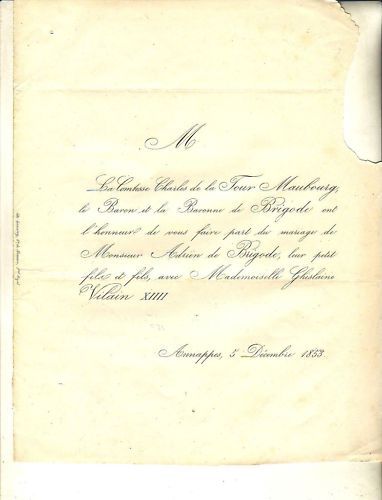 M
La Comtesse Charles de la Tour Maubourg,
le Baron et la Baronne de Brigode ont
l'honneur de vous faire part du mariage de
Monsieur Adrien de Brigode, leur petit
fils et fils, avec Mademoiselle Ghislaine
Vilain XIIII
Annappes, 5 Décembre 1853